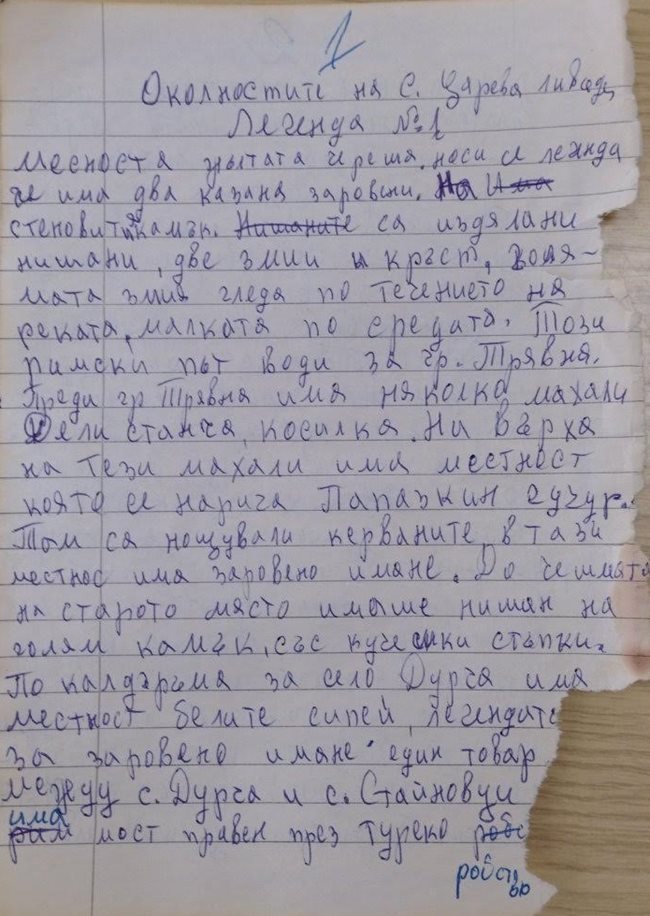 1
Околностите на с. Царева ливада
Легенда № 1
месноста жытата череша. носи се легенда
че има два казана заровени. На Има
стеновитя камък. Нишаните са издялани
нишани, две змии и кръст, голя-
мата змия гледа по течението на
реката, малката по средата. Този
римски път води за гр. Трявна.
Преди гр Трявна има няколко махали
Дяли станча, косилка. На върха
на тези махали има местност
която се нарича Папазкин чучур.
Там са нощували керваните в тази
местнос има заровено имане. До чешмата
на старото място имаше нишан на
голям камък, със кучешки стъпки.
По калдъръма за село Дурча има
местност белите сипеи, легендате
за заровено имане един товар
между с. Дурча и с. Стайновци
има
рим мост правен през туреко робс
ройство